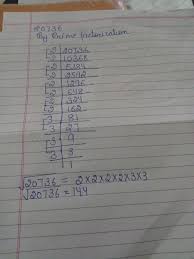 20736
By Prime factorization
2 20736
2 10368
2 5184
2 2592
2 1296
2 648
2 324
2 162
3 81
3 27
3 9
3 3
1
√20736 = 2×2×2×2×3×3
√20736 = 144